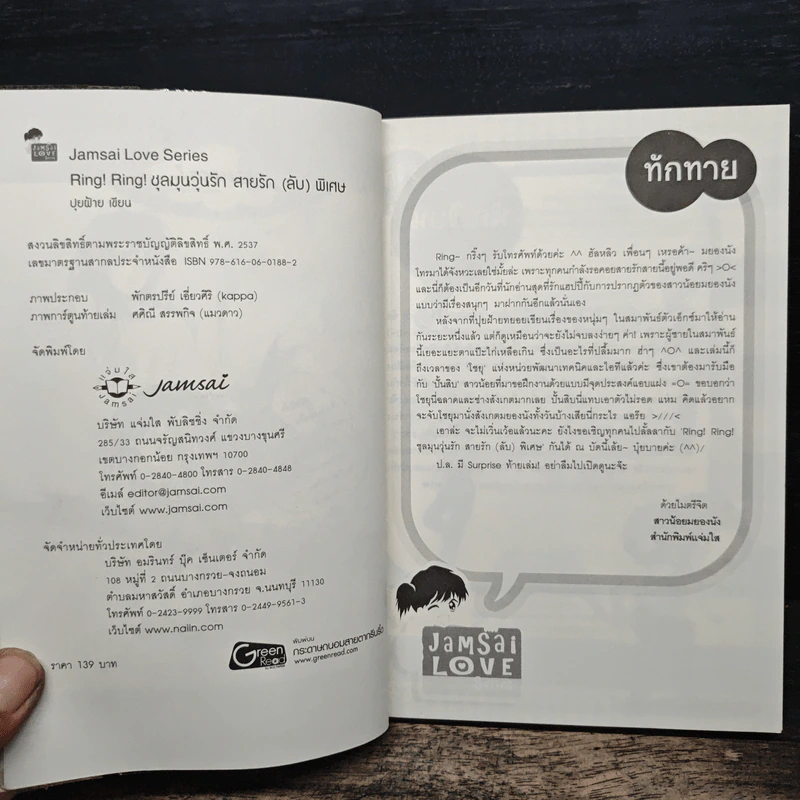 JAMSAI
LOVE
Jamsai Love Series
Ring! Ring! ชุลมุนวุ่นรัก สายรัก (ลับ) พิเศษ
ปุยฝ้าย เขียน
สงวนลิขสิทธิ์ตามพระราชบัญญัติลิขสิทธิ์ พ.ศ. 2537
เลขมาตรฐานสากลประจำหนังสือ ISBN 978-616-06-0188-2
ภาพประกอบ พักตรปรีย์ เอี่ยวศิริ (kappa)
ภาพการ์ตูนท้ายเล่ม ศศิณี สรรพกิจ (แมวดาว)
จัดพิมพ์โดย
แจ่มใส
Jamsai
Jamsai
บริษัท แจ่มใส พับลิชชิ่ง จำกัด
285/33 ถนนจรัญสนิทวงศ์ แขวงบางขุนศรี
เขตบางกอกน้อย กรุงเทพฯ 10700
โทรศัพท์ 0-2840-4800 โทรสาร 0-2840-4848
อีเมล์ editor@jamsai.com
เว็บไซต์ www.jamsai.com
จัดจำหน่ายทั่วประเทศโดย
บริษัท อมรินทร์ บุ๊ค เซ็นเตอร์ จำกัด
108 หมู่ที่ 2 ถนนบางกรวย-จงถนอม
ตำบลมหาสวัสดิ์ อำเภอบางกรวย จ.นนทบุรี 11130
โทรศัพท์ 0-2423-9999 โทรสาร 0-2449-9561-3
เว็บไซต์ www.naiin.com
ราคา 139 บาท
Green
Read
พิมพ์บน
กระดาษถนอมสายตากรีนรี้ด
www.greenread.com
ทักทาย
Ring~ กริ๊งๆ รับโทรศัพท์ด้วยค่ะ ^^ ฮัลหลิว เพื่อนๆ เหรอค้า~ มยองนัง
โทรมาได้จังหวะเลยใช่มั้ยล่ะ เพราะทุกคนกำลังรอคอยสายรักสายนี้อยู่พอดี คริๆ >O<
และนี่ก็ต้องเป็นอีกวันที่นักอ่านสุดที่รักแฮปปี้กับการปรากฏตัวของสาวน้อยมยองนัง
แบบว่ามีเรื่องสนุกๆ มาฝากกันอีกแล้วนั่นเอง
หลังจากที่ปุยฝ้ายทยอยเขียนเรื่องของหนุ่มๆ ในสมาพันธ์ตัวเอ็กซ์มาให้อ่าน
กันระยะหนึ่งแล้ว แต่ก็ดูเหมือนว่าจะยังไม่จบลงง่ายๆ ค่า! เพราะผู้ชายในสมาพันธ์
นี้เยอะแยะตาแป๊ะไก๋เหลือเกิน ซึ่งเป็นอะไรที่ปลื้มมาก ฮ่าๆ ^O^ และเล่มนี้ก็
ถึงเวลาของ 'โซยุ' แห่งหน่วยพัฒนาเทคนิคและไอทีแล้วค่ะ ซึ่งเขาต้องมารับมือ
กับ 'บั้นสิบ' สาวน้อยที่มาขอฝึกงานด้วยแบบมีจุดประสงค์แอบแฝง =O= ขอบอกว่า
โซยุนี่ฉลาดและช่างสังเกตมากเลย บั้นสิบนี่แทบเอาตัวไม่รอด แหม คิดแล้วอยาก
จะจับโซยุมานั่งสังเกตมยองนังทั้งวันบ้างเสียนี่กระไร แอร๊ย >///<
เอาล่ะ จะไม่เวิ่นเว้อแล้วค่ะ ยังไงขอเชิญทุกคนไปลั้ลลากับ 'Ring! Ring!
ชุลมุนวุ่นรัก สายรัก (ลับ) พิเศษ' กันได้ ณ บัดนี้เล้ย~ บุ๋ยบายค่ะ (^^)/
ป.ล. มี Surprise ท้ายเล่ม! อย่าลืมไปเปิดดูนะจ๊ะ
ด้วยไมตรีจิต
สาวน้อยมยองนัง
สำนักพิมพ์แจ่มใส
JAMSAI
LOVE